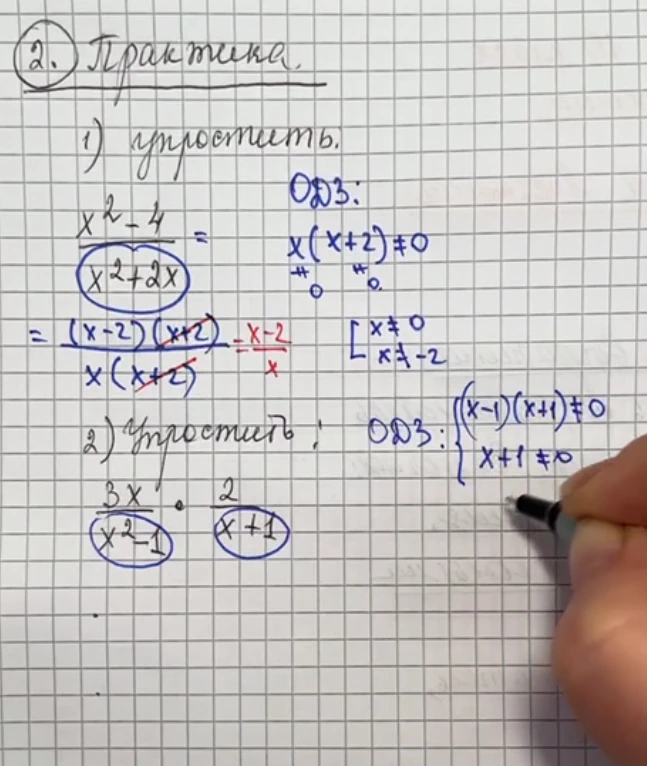 2. Практика.
1) упростить.
ОДЗ:
x² - 4
x² + 2x
=
x(x+2) ≠ 0
≠ 0 ≠ 0.
= (x-2)(x+2)
x(x+2)
= x-2
x
[ x ≠ 0
x ≠ -2
2) Упростить:
ОДЗ: { (x-1)(x+1) ≠ 0
x+1 ≠ 0
3x · 2
x²-1 x+1